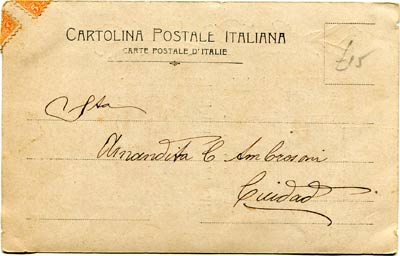 CARTOLINA POSTALE ITALIANA
CARTE POSTALE D'ITALIE
£15
Sta
Amandita C Ambrosoni
Ciudad